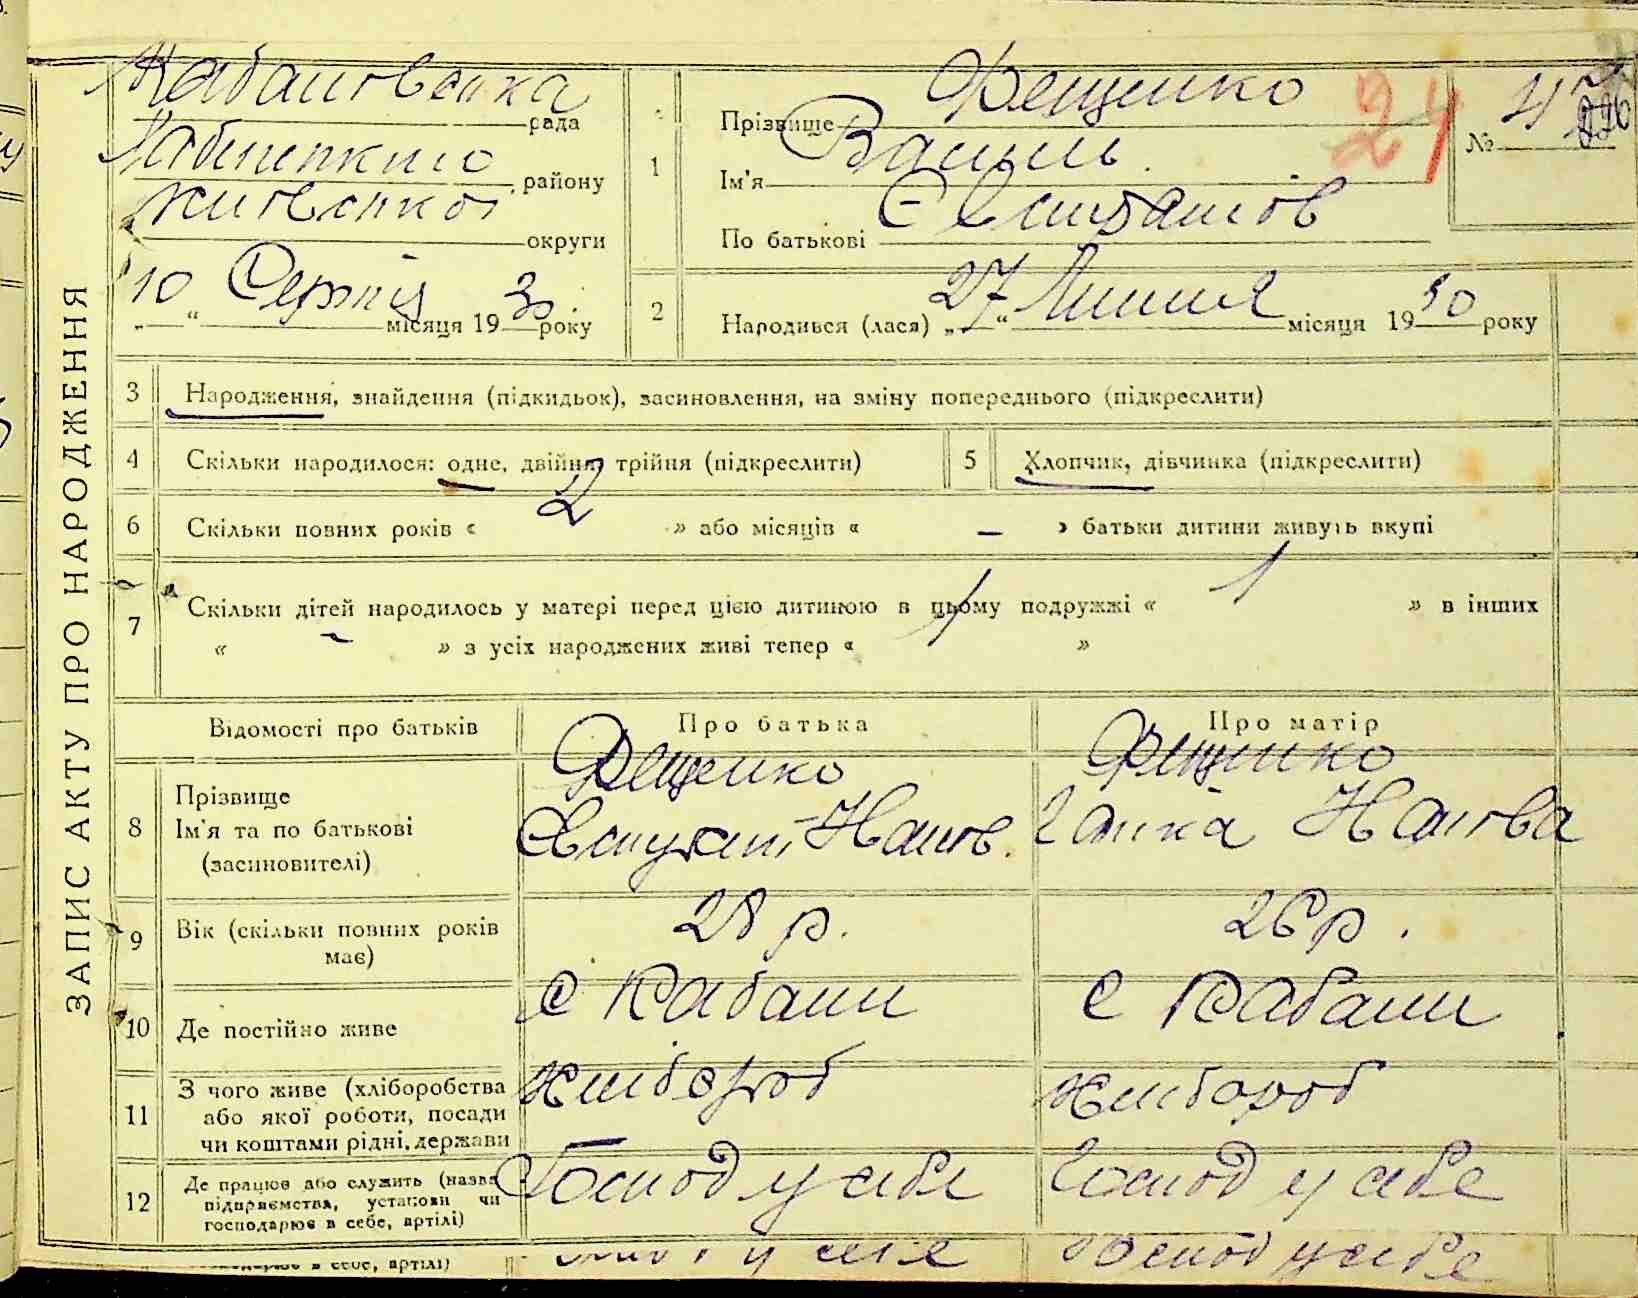 ЗАПИС АКТУ ПРО НАРОДЖЕННЯ
Кабанівська
рада
району
округи
10 Серпня
„ “ місяця 19 30 року
1
Прізвище Фещенко
Ім'я Василь
По батькові
24
№ 47
226
2
Народився (лася) „ 27 “ Липня місяця 19 30 року
3 Народження, знайдення (підкидьок), засиновлення, на зміну попереднього (підкреслити)
4 Скільки народилося: одне, двійня, трійня (підкреслити)
5 Хлопчик, дівчинка (підкреслити)
6 Скільки повних років « 2 » або місяців « – » батьки дитини живуть вкупі
7 Скільки дітей народилось у матері перед цією дитиною в цьому подружжі « 1 » в інших
« – » з усіх народжених живі тепер « 1 »
Відомості про батьків
Про батька
Про матір
8 Прізвище
Ім'я та по батькові
(засиновителі)
Фещенко
Іванов.
Фещенко
Ганка Іванова
9 Вік (скільки повних років
має)
28 р.
26 р.
10 Де постійно живе
с Кабани
с Кабани
11 З чого живе (хліборобства
або якої роботи, посади
чи коштами рідні, держави
хлібороб
хлібороб
12 Де працює або служить (назва
підприємства, установи чи
господарює в себе, артілі)
Господ у себе
Господ у себе
в себе, артілі)
у себе
Господ у себе